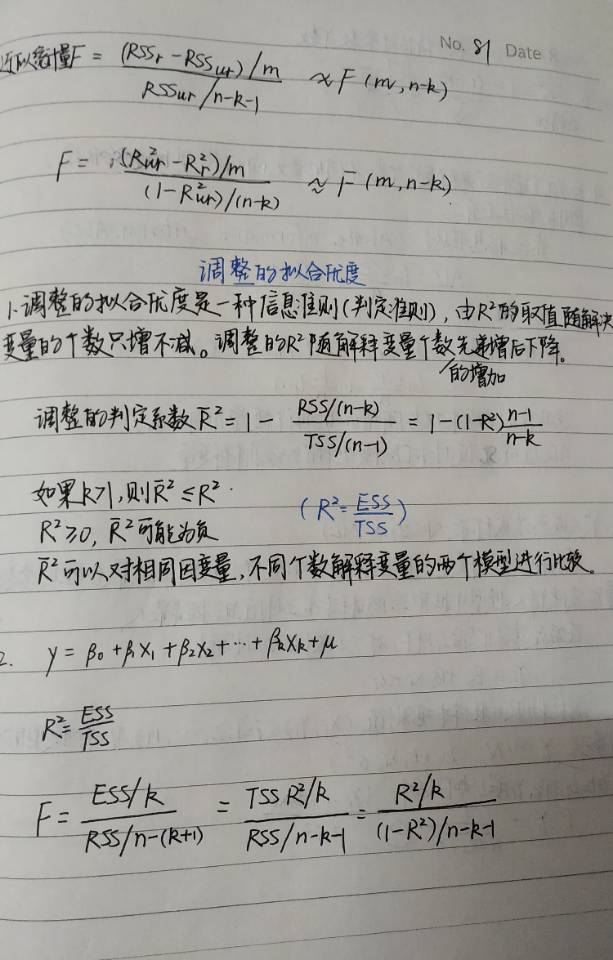 No. 81 Date
近似统计量F = (RSSr - RSSur)/m / RSSur/n-k-1 ~ F(m, n-k)
F = (R²ur - R²r)/m / (1-R²ur)/(n-k) ≈ F(m, n-k)
调整的拟合优度
1.调整的拟合优度是一种信息准则(判定准则), 由R²的取值随解决
变量的个数只增不减。调整的R²随解释变量个数先递增后下降。
的增加
调整的判定系数R̄² = 1 - RSS/(n-k) / TSS/(n-1) = 1-(1-R²) n-1/n-k
如果k>1,则R̄² ≤ R².
(R²=ESS/TSS)
R²≥0, R̄²可能为负
R̄²可以对相同因变量,不同个数解释变量的两个模型进行比较。
2. y = β0 + β1X1 + β2X2 + ··· + βkXk + μ
R²=ESS/TSS
F = ESS/k / RSS/n-(k+1) = TSS R²/k / RSS/n-k-1 = R²/k / (1-R²)/n-k-1